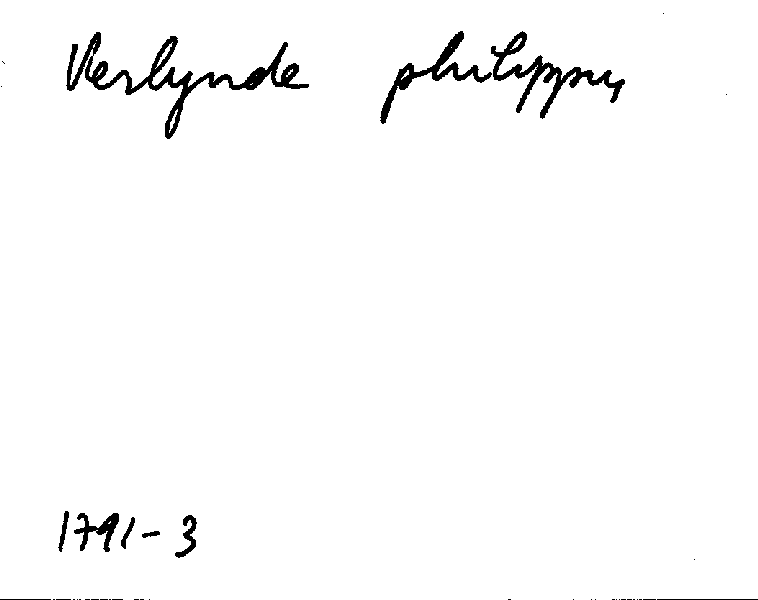 Verlynde philippus
1791-3